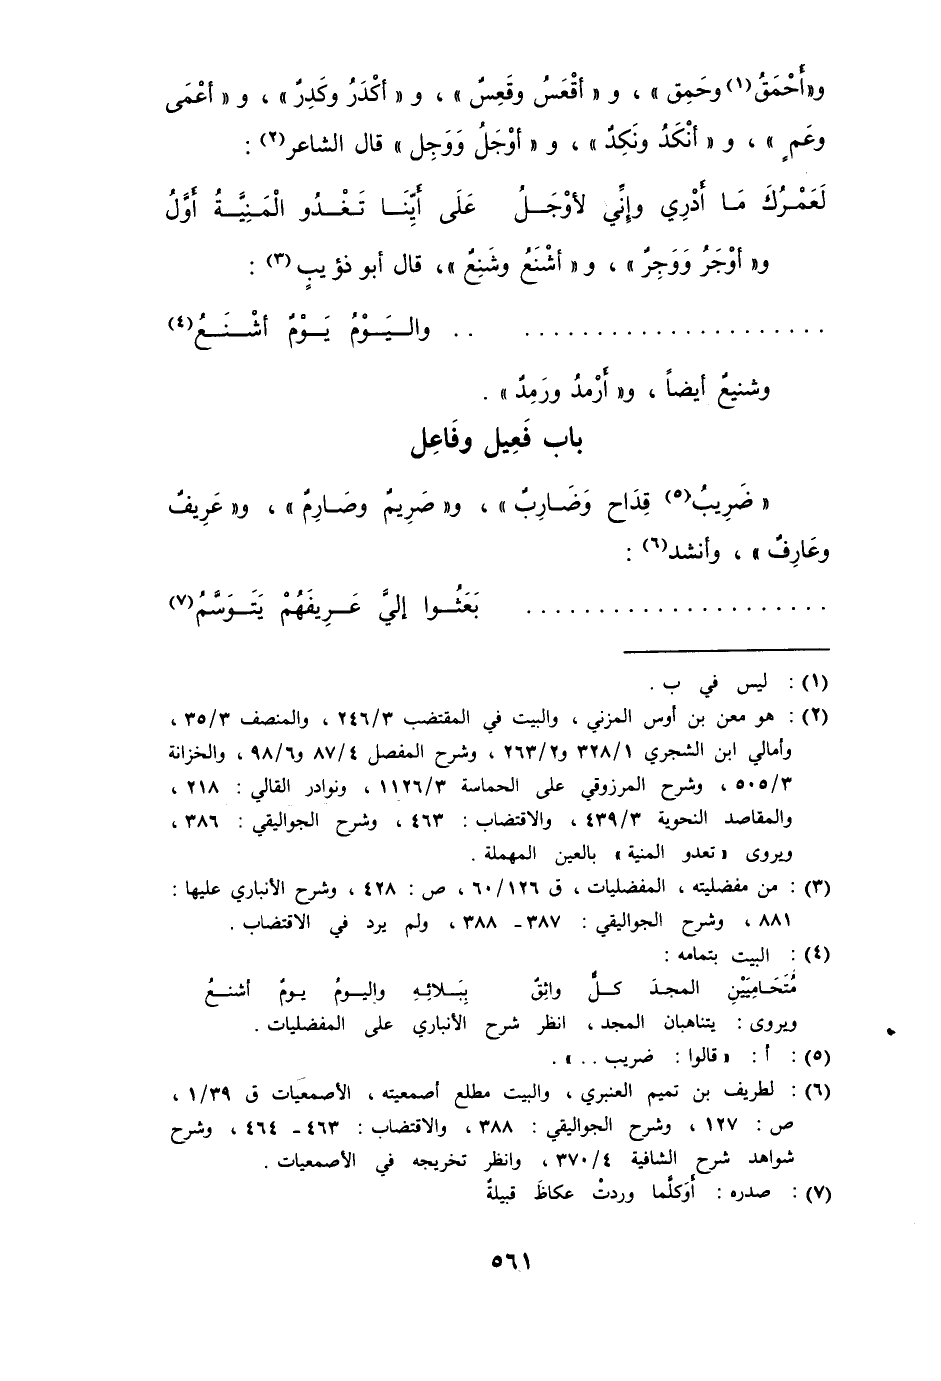 و«أَحْمَقُ(١) وحَمِق» ، و « أقْعَسُ وقَعِسٌ » ، و « أكْدَرُ وكَدِرٌ » ، و « أعْمَى
وعَمٍ » ، و « أنْكَدُ ونَكِدٌ » ، و « أوْجَلُ وَوَجِل » قال الشاعر(٢) :
لَعَمْرُكَ مَا أَدْرِي وإنِّي لأوْجَلُ عَلَى أيِّنَا تَغْدُو الْمَنِيَّةُ أَوَّلُ
و« أوْجَرُ وَوَجِرٌ » ، و « أشْنَعُ وشَنِعٌ »، قال أبو ذؤيبٍ(٣) :
..................... .. واليَوْمُ يَوْمٌ أشْنَعُ(٤)
وشنيعٌ أيضاً ، و« أَرْمدُ ورَمِدٌ » .
باب فَعِيل وفَاعِل
« ضَرِيبُ(٥) قِدَاح وَضَارِبٌ » ، و« صَرِيمٌ وصَارِمٌ » ، و« عَرِيفٌ
وعَارِفٌ » ، وأنشد(٦) :
..................... بَعَثُوا إليَّ عَرِيفَهُمْ يَتَوَسَّمُ(٧)
(١) : ليس في ب .
(٢) : هو معن بن أوس المزني ، والبيت في المقتضب ٢٤٦/٣ ، والمنصف ٣٥/٣ ،
وأمالي ابن الشجري ٣٢٨/١ و٢٦٣/٢ ، وشرح المفصل ٨٧/٤ و٩٨/٦ ، والخزانة
٥٠٥/٣ ، وشرح المرزوقي على الحماسة ١١٢٦/٣ ، ونوادر القالي : ٢١٨ ،
والمقاصد النحوية ٤٣٩/٣ ، والاقتضاب : ٤٦٣ ، وشرح الجواليقي : ٣٨٦ ،
ويروى « تعدو المنية » بالعين المهملة .
(٣) : من مفضليته ، المفضليات ، ق ٦٠/١٢٦ ، ص : ٤٢٨ ، وشرح الأنباري عليها :
٨٨١ ، وشرح الجواليقي : ٣٨٧ـ ٣٨٨ ، ولم يرد في الاقتضاب .
(٤) : البيت بتمامه :
مُتَحَامِيَيْنِ المجدَ كلٌّ واثِقٌ بِبَلائِهِ واليومُ يومٌ أشنعُ
ويروى : يتناهبان المجد ، انظر شرح الأنباري على المفضليات .
(٥) : أ : « قالوا : ضريب . . » .
(٦) : لطريف بن تميم العنبري ، والبيت مطلع أصمعيته ، الأصمعيات ق ١/٣٩ ،
ص : ١٢٧ ، وشرح الجواليقي : ٣٨٨ ، والاقتضاب : ٤٦٣ـ ٤٦٤ ، وشرح
شواهد شرح الشافية ٣٧٠/٤ ، وانظر تخريجه في الأصمعيات .
(٧) : صدره : أَوَكلَّما وردتْ عكاظَ قبيلةٌ
٥٦١